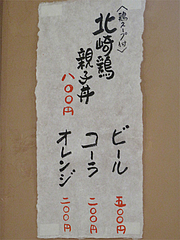 〈鶏スープ付〉
北崎鶏
親子丼
八〇〇円
ビール
五〇〇円
コーラ
二〇〇円
オレンジ
二〇〇円